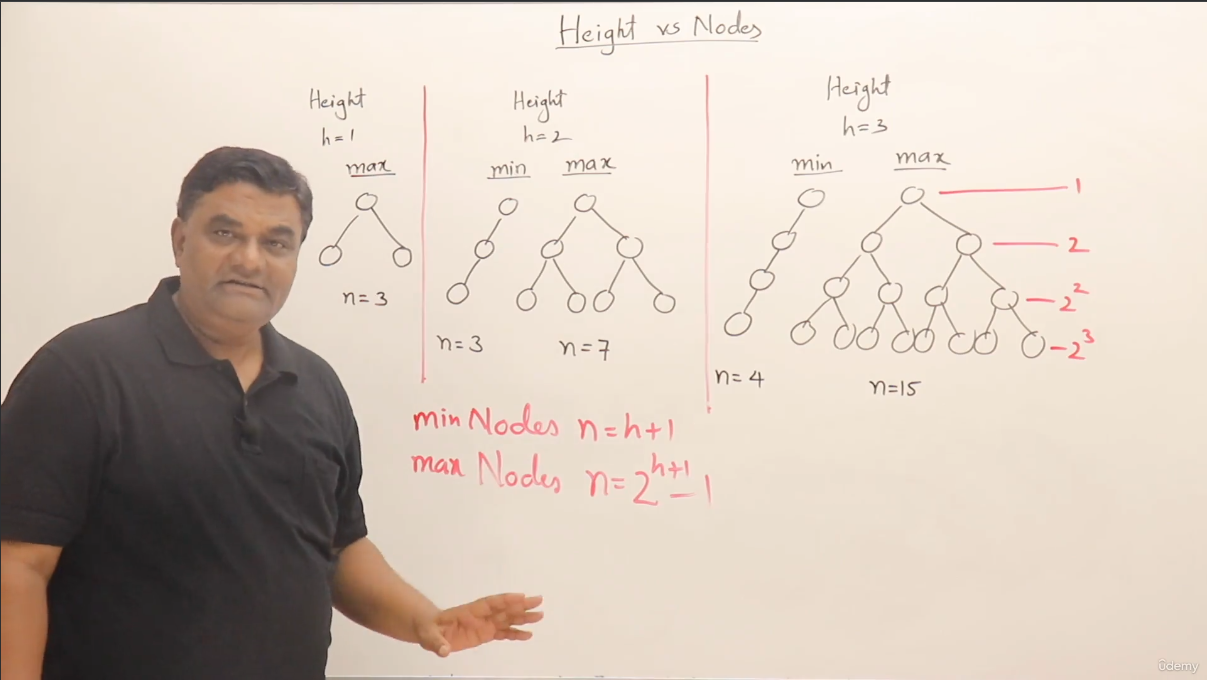 Height vs Nodes
Height
h=1
max
n=3
Height
h=2
min max
n=3 n=7
Height
h=3
min max
1
2
2²
2³
n=4 n=15
min Nodes n=h+1
max Nodes n=2^{h+1}-1
ûdemy